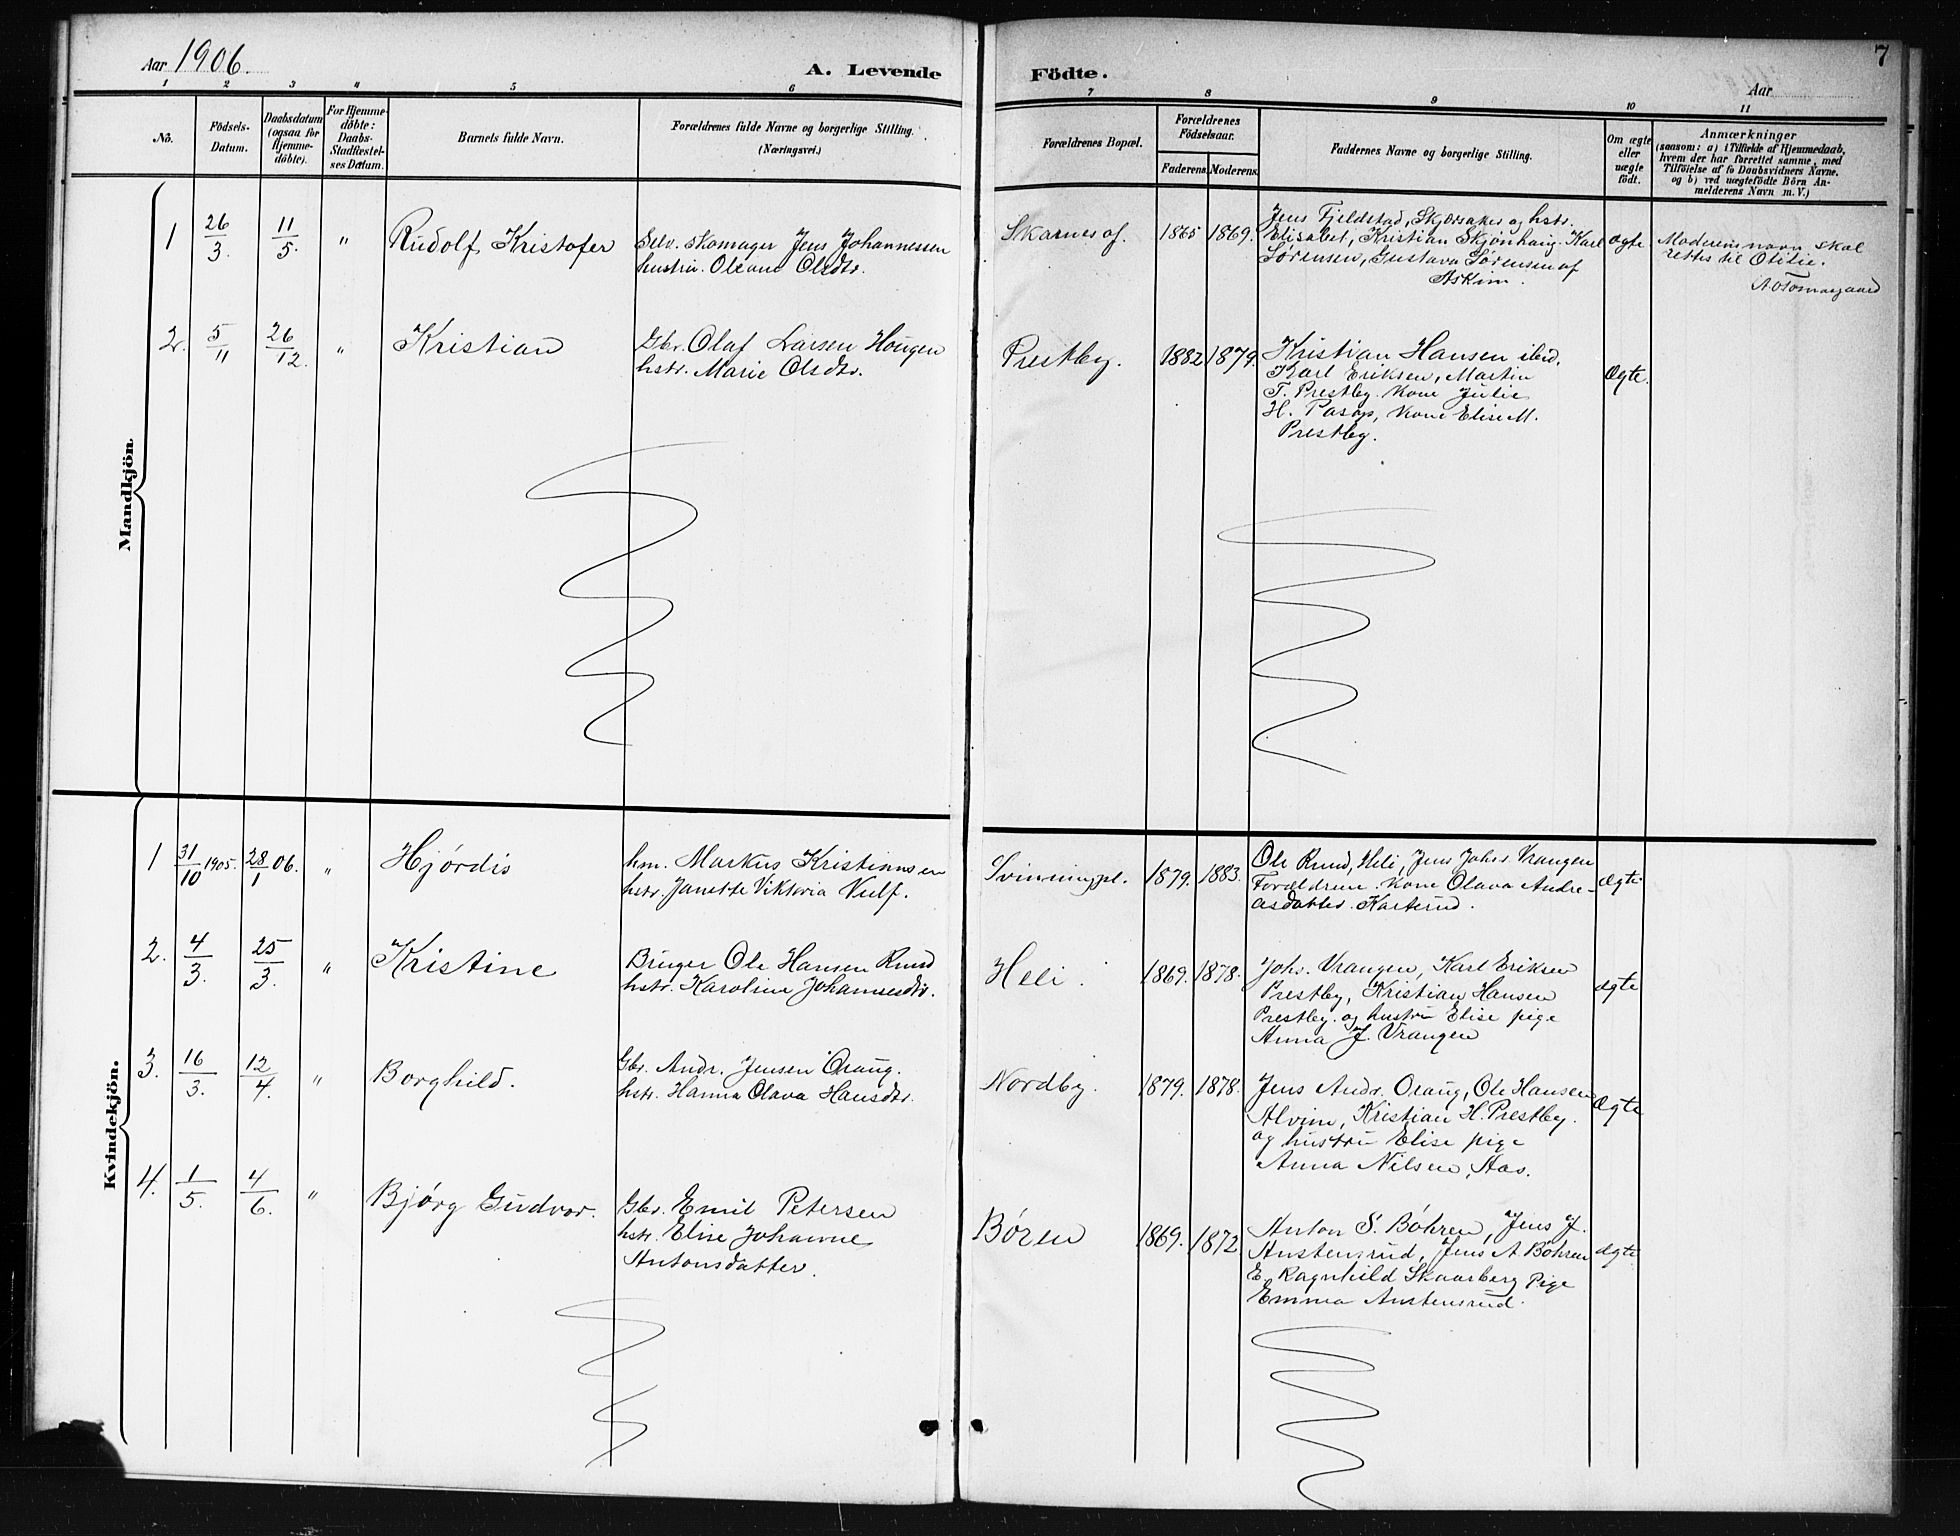 7
Aar 1906.
A. Levende Födte.
Aar
1 2 3 4 5 6 7 8 9 10 11
No.
Födsels-
Datum.
Daabsdatum
(ogsaa for
Hjemme-
döbte).
For Hjemme-
döbte:
Daabs-
Stadfæstel-
ses Datum.
Barnets fulde Navn.
Forældrenes fulde Navne og borgerlige Stilling.
(Næringsvei.)
Forældrenes Bopæl.
Forældrenes
Födselsaar.
Faderens. Moderens.
Faddernes Navne og borgerlige Stilling.
Om ægte
eller
uægte
födt.
Anmærkninger
(saasom: a) i Tilfælde af Hjemmedaab,
hvem der har forrettet samme, med
Tilföielse af to Daabsvidners Navne.
og b) ved uægtefödte Börn An-
melderens Navn m. V.)
Mandkjön
1 26/3. 11/5. " Rudolf Kristofer
Selv. skomager Jens Johannessen
hustru Oleane Olsdtr.
Skarnes af. 1865 1869.
Jens Fjeldstad, Skjørsaker og hstr.
Elisabet, Kristian Skjønhaug. Karl
Sørensen, Gustava Sørensen af
Askim.
ægte
Moderens navn skal
rettes til Otilie.
2. 5/11 26/12. " Kristian
Gbr. Olaf Larsen Hougen
hstr. Marie Olsdtr.
Prestby. 1882 1879.
Kristian Hansen ibid.
Karl Eriksen, Martin
T. Prestby. Kone Julie
H. Kone Elise M.
Prestby.
Ægte.
Kvindekjön.
1 31/10 1905. 28/1 06. " Hjørdis
hm. Markus Kristiansen
hstr. Janette Viktoria Vulf.
Svinningpl. 1879. 1883.
Ole Ruud, Heli, Jens Johs. Vrangen
Forældrene. Kone Olava Andre-
asdatter. Karterud.
Ægte
2. 4/3. 25/3. " Kristine
Bruger Ole Hansen Ruud
hstr. Karoline Johannesdtr.
Heli. 1869. 1878.
Johs. Vrangen, Karl Eriksen
Prestby, Kristian Hansen
Prestby. og hustru Elise pige
Anna J. Vrangen
ægte
3. 16/3. 12/4. " Borghild.
Gbr. Andr. Jensen Oraug.
hstr. Hanna Olava Hansdtr.
Nordby. 1879. 1878.
Jens Andr. Oraug, Ole Hansen
Alvim, Kristian H. Prestby.
og hustru Elise pige
Anna Nilsen, Aas.
Ægte
4. 1/5. 4/6. " Bjørg Gudvor.
Gbr. Emil Petersen
hstr. Elise Johanne
Antonsdatter.
Børen 1869. 1872
Anton S. Bøhren, Jens J.
Austensrud, Jens A Bøhren
E. Ragnhild Skaarberg Pige
Emma Austensrud.
ægte